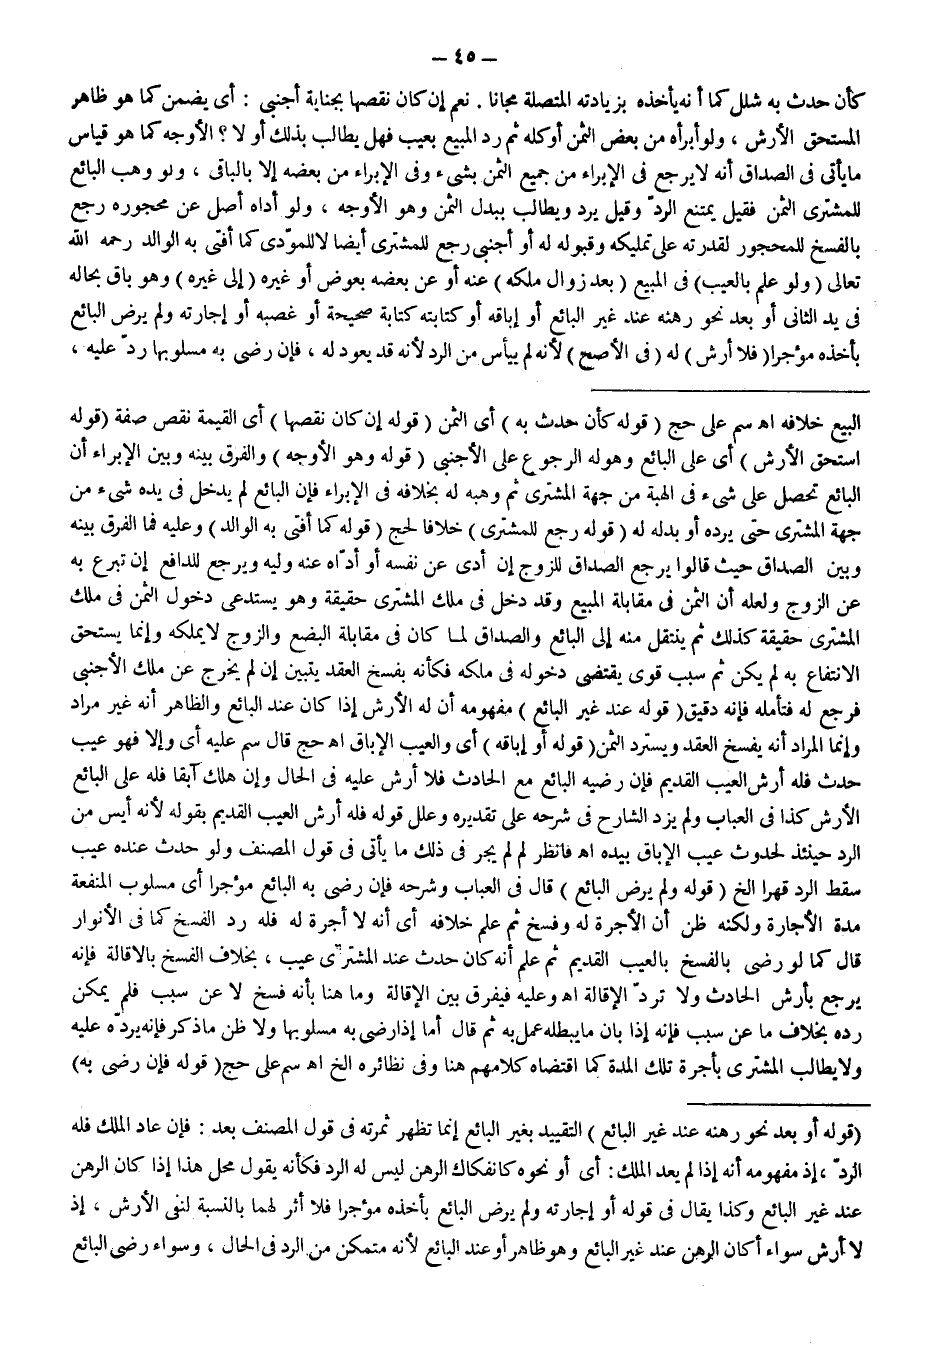 – ٤٥ –
كأن حدث به شلل كما أنه يأخذه بزيادته المتصلة مجانا . نعم إن كان نقصها بجناية أجنبي : أى يضمن كما هو ظاهر
المستحق الأرش ، ولو أبرأه من بعض الثمن أو كله ثم رد المبيع بعيب فهل يطالب بذلك أو لا ؟ الأوجه كما هو قياس
ما يأتى فى الصداق أنه لا يرجع فى الإبراء من جميع الثمن بشىء وفى الإبراء من بعضه إلا بالباقى ، ولو وهب البائع
للمشترى الثمن فقيل يمتنع الردّ وقيل يرد ويطالب ببدل الثمن وهو الأوجه ، ولو أداه أصل عن محجوره رجع
بالفسخ للمحجور لقدرته على تمليكه وقبوله له أو أجنبى رجع للمشترى أيضا لا للمؤدى كما أفتى به الوالد رحمه الله
تعالى ( ولو علم بالعيب ) فى المبيع ( بعد زوال ملكه ) عنه أو عن بعضه بعوض أو غيره ( إلى غيره ) وهو باق بحاله
فى يد الثانى أو بعد نحو رهنه عند غير البائع أو إباقه أو كتابته كتابة صحيحة أو غصبه أو إجارته ولم يرض البائع
بأخذه مؤجرا ( فلا أرش ) له ( فى الأصح ) لأنه لم ييأس من الرد لأنه قد يعود له ، فإن رضى به مسلوبها ردّ عليه ،
البيع خلافه اه سم على حج ( قوله كأن حدث به ) أى الثمن ( قوله إن كان نقصها ) أى القيمة نقص صفة (قوله
استحق الأرش ) أى على البائع وهو له الرجوع على الأجنبى ( قوله وهو الأوجه ) والفرق بينه وبين الإبراء أن
البائع تحصل على شىء فى الهبة من جهة المشترى ثم وهبه له بخلافه فى الإبراء فإن البائع لم يدخل فى يده شىء من
جهة المشترى حتى يرده أو بدله له ( قوله رجع للمشترى ) خلافا لحج ( قوله كما أفتى به الوالد ) وعليه فما الفرق بينه
وبين الصداق حيث قالوا يرجع الصداق للزوج إن أدى عن نفسه أو أدّاه عنه وليه ويرجع للدافع إن تبرع به
عن الزوج ولعله أن الثمن فى مقابلة المبيع وقد دخل فى ملك المشترى حقيقة وهو يستدعى دخول الثمن فى ملك
المشترى حقيقة كذلك ثم ينتقل منه إلى البائع والصداق لما كان فى مقابلة البضع والزوج لا يملكه وإنما يستحق
الانتفاع به لم يكن ثم سبب قوى يقتضى دخوله فى ملكه فكأنه بفسخ العقد يتبين إن لم يخرج عن ملك الأجنبى
فرجع له فتأمله فإنه دقيق ( قوله عند غير البائع ) مفهومه أن له الأرش إذا كان عند البائع والظاهر أنه غير مراد
وإنما المراد أنه يفسخ العقد ويسترد الثمن ( قوله أو إباقه ) أى والعيب الإباق اه حج قال سم عليه أى وإلا فهو عيب
حدث فله أرش العيب القديم فإن رضيه البائع مع الحادث فلا أرش عليه فى الحال وإن هلك آبقا فله على البائع
الأرش كذا فى العباب ولم يزد الشارح فى شرحه على تقديره وعلل قوله فله أرش العيب القديم بقوله لأنه أيس من
الرد حينئذ لحدوث عيب الإباق بيده اه فانظر لم لم يجر فى ذلك ما يأتى فى قول المصنف ولو حدث عنده عيب
سقط الرد قهرا الخ ( قوله ولم يرض البائع ) قال فى العباب وشرحه فإن رضى به البائع مؤجرا أى مسلوب المنفعة
مدة الأجارة ولكنه ظن أن الأجرة له وفسخ ثم علم خلافه أى أنه لا أجرة له فله رد الفسخ كما فى الأنوار
قال كما لو رضى بالفسخ بالعيب القديم ثم علم أنه كان حدث عند المشترى عيب ، بخلاف الفسخ بالاقالة فإنه
يرجع بأرش الحادث ولا تردّ الإقالة اه وعليه فيفرق بين الإقالة وما هنا بأنه فسخ لا عن سبب فلم يمكن
رده بخلاف ما عن سبب فإنه إذا بان ما يبطله عمل به ثم قال أما إذا رضى به مسلوبها ولا ظن ما ذكر فإنه يردّه عليه
ولا يطالب المشترى بأجرة تلك المدة كما اقتضاه كلامهم هنا وفى نظائره الخ اه سم على حج ( قوله فإن رضى به )
(قوله أو بعد نحو رهنه عند غير البائع ) التقييد بغير البائع إنما تظهر ثمرته فى قول المصنف بعد : فإن عاد الملك فله
الردّ ، إذ مفهومه أنه إذا لم يعد الملك : أى أو نحوه كانفكاك الرهن ليس له الرد فكأنه يقول محل هذا إذا كان الرهن
عند غير البائع وكذا يقال فى قوله أو إجارته ولم يرض البائع بأخذه مؤجرا فلا أثر لهما بالنسبة لنفى الأرش ، إذ
لا أرش سواء أكان الرهن عند غير البائع وهو ظاهر أو عند البائع لأنه متمكن من الرد فى الحال ، وسواء رضى البائع